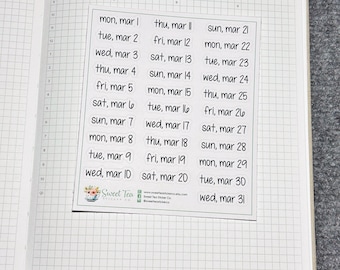 mon, mar 1
tue, mar 2
wed, mar 3
thu, mar 4
fri, mar 5
sat, mar 6
sun, mar 7
mon, mar 8
tue, mar 9
wed, mar 10
thu, mar 11
fri, mar 12
sat, mar 13
sun, mar 14
mon, mar 15
tue, mar 16
wed, mar 17
thu, mar 18
fri, mar 19
sat, mar 20
sun, mar 21
mon, mar 22
tue, mar 23
wed, mar 24
thu, mar 25
fri, mar 26
sat, mar 27
sun, mar 28
mon, mar 29
tue, mar 30
wed, mar 31
Sweet Tea